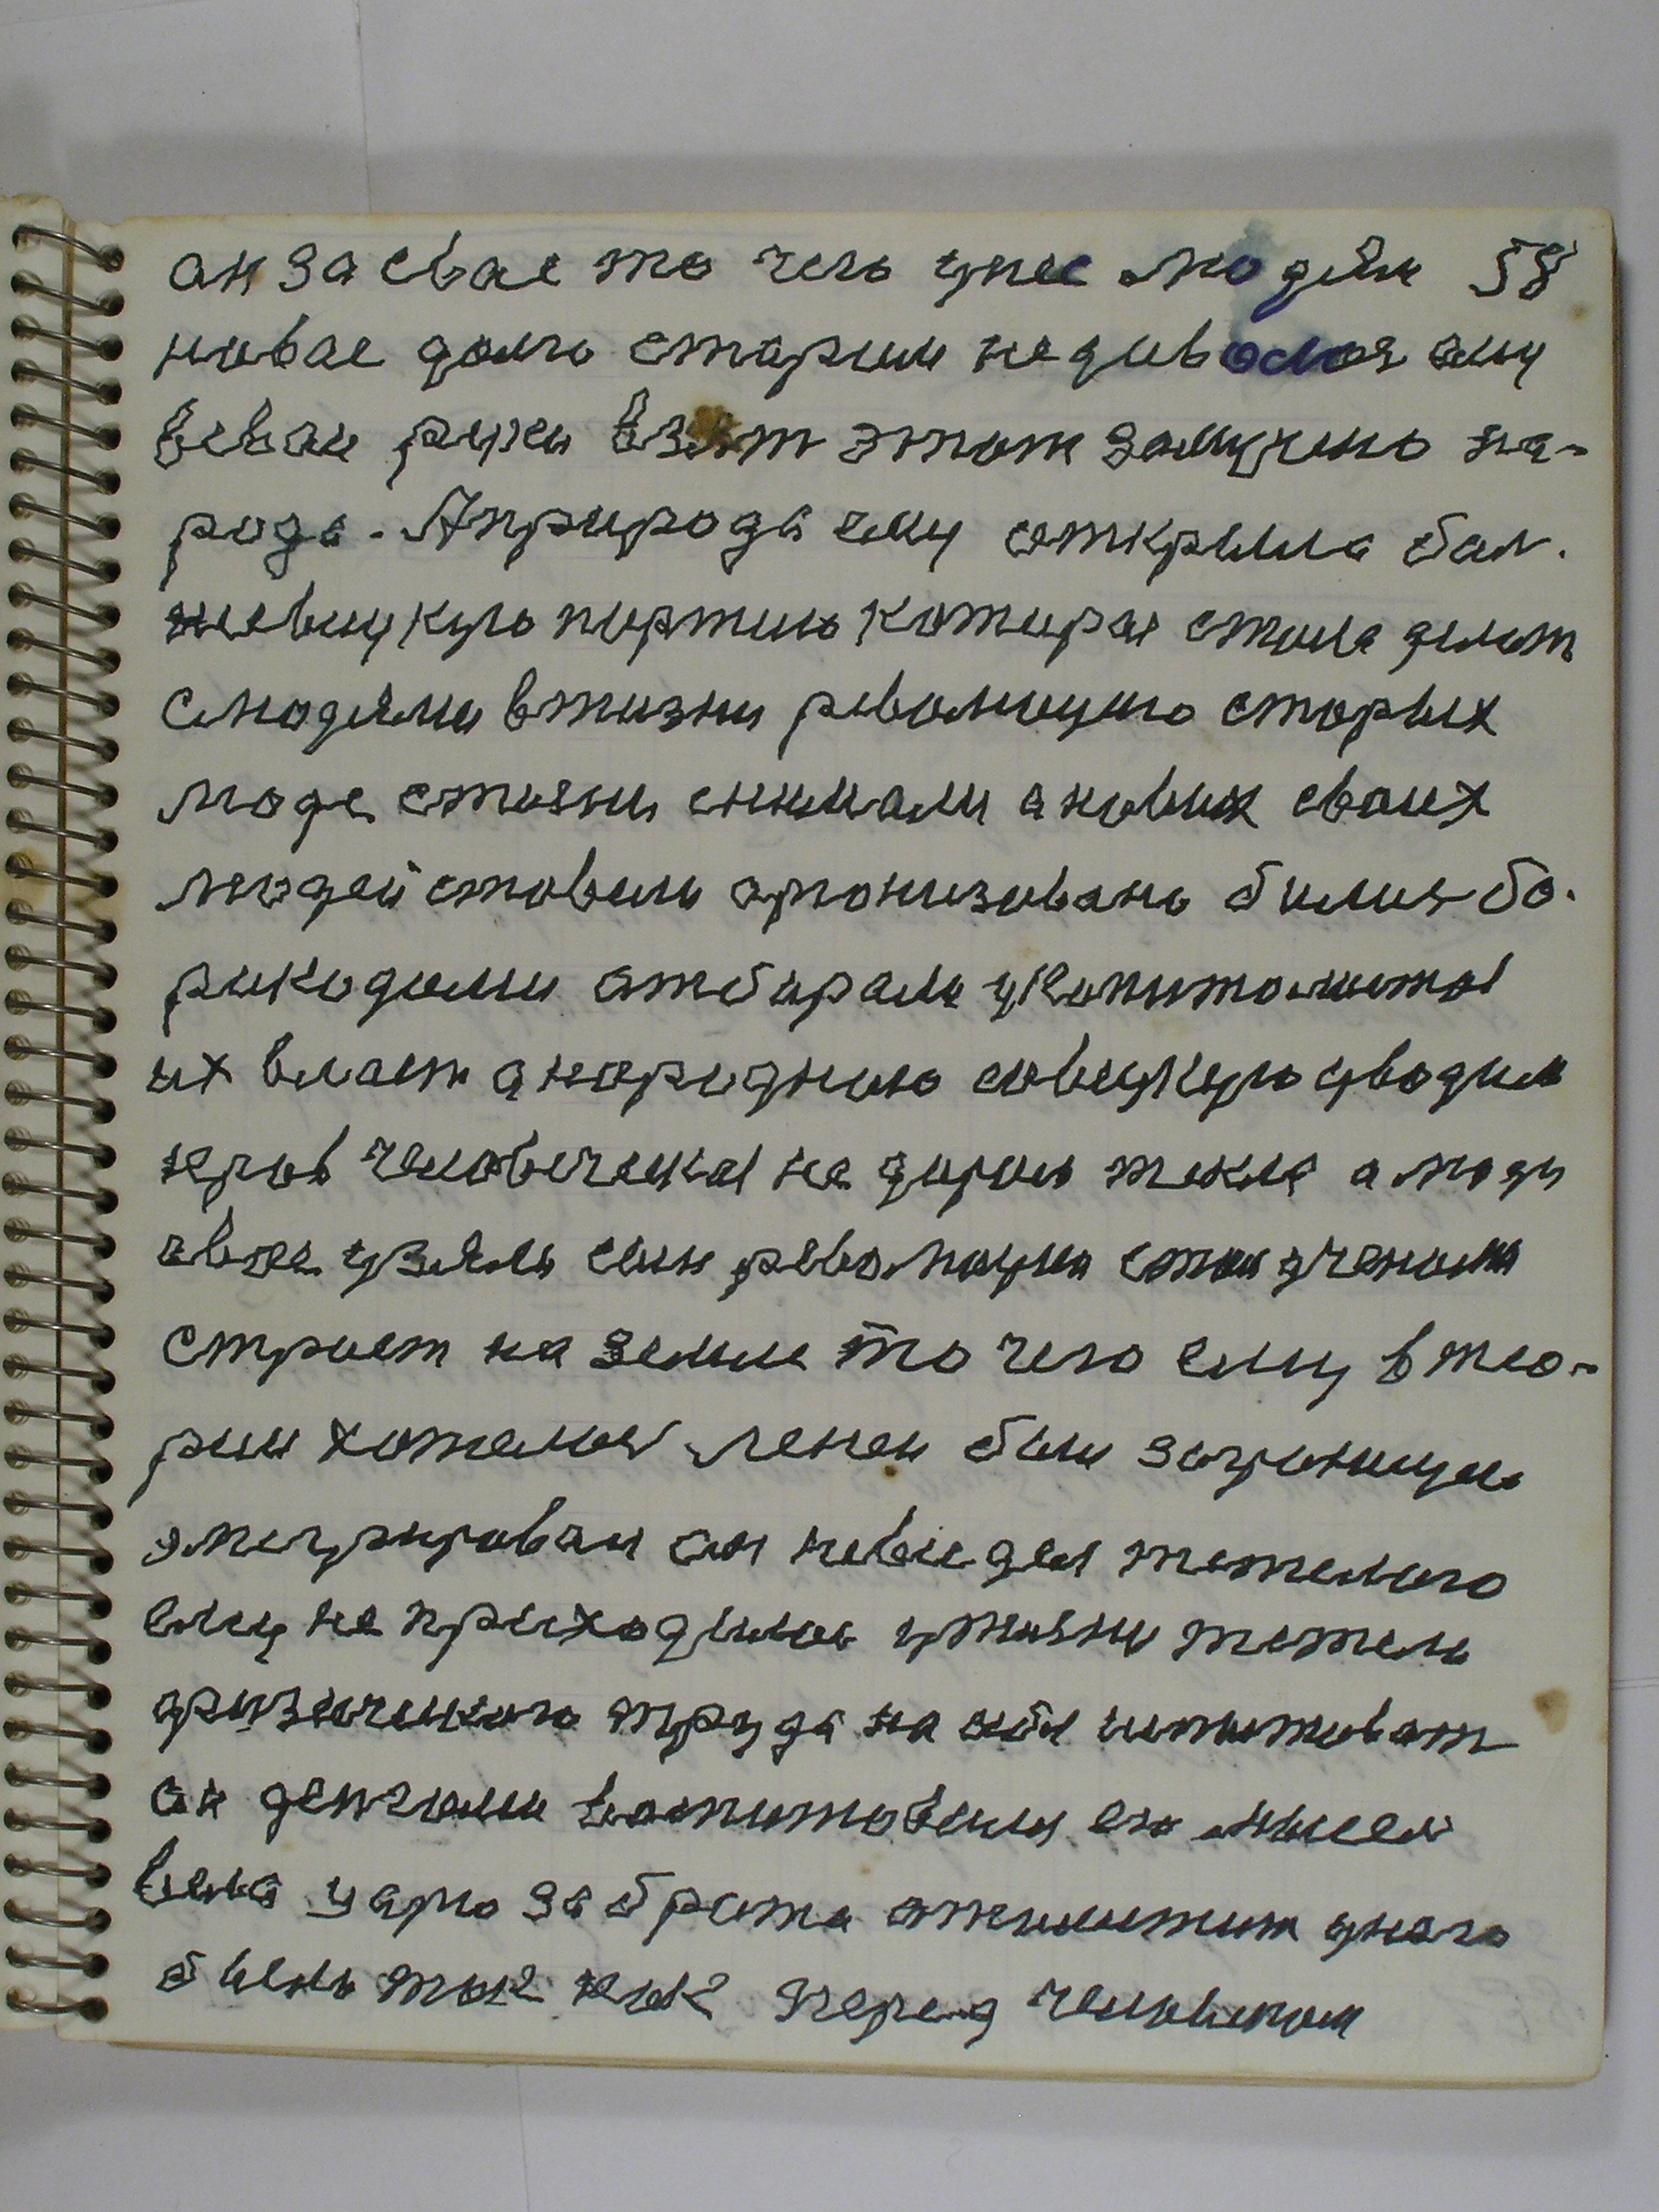 ан за свае то чего унес людям 58
новае дало старим недиволося ему
всваи руки взят этот замучено на-
рода. А природа ему открыла бал.
шевицкую партию которая стала делат
слюдями вжизни революцию старых
люде сжизни снимали а новых сваих
людей ставили арганизовано билися ба.
рикодами атбирали укапиталистов
их власт а народную совецкую уводили
кров человеческая не даром текла а люди
евое узяли син революции стал ученом
строет на земле то чего ему в тео-
рии хотелося ленен был заграницею
эмегрирован он невидел тежелого
ему не приходилос ужизни тежело
физическога труда на себя испитоват
ан денгами воспитовался его мисел
вела царю за брата атмистит унего
было так как перед человеком